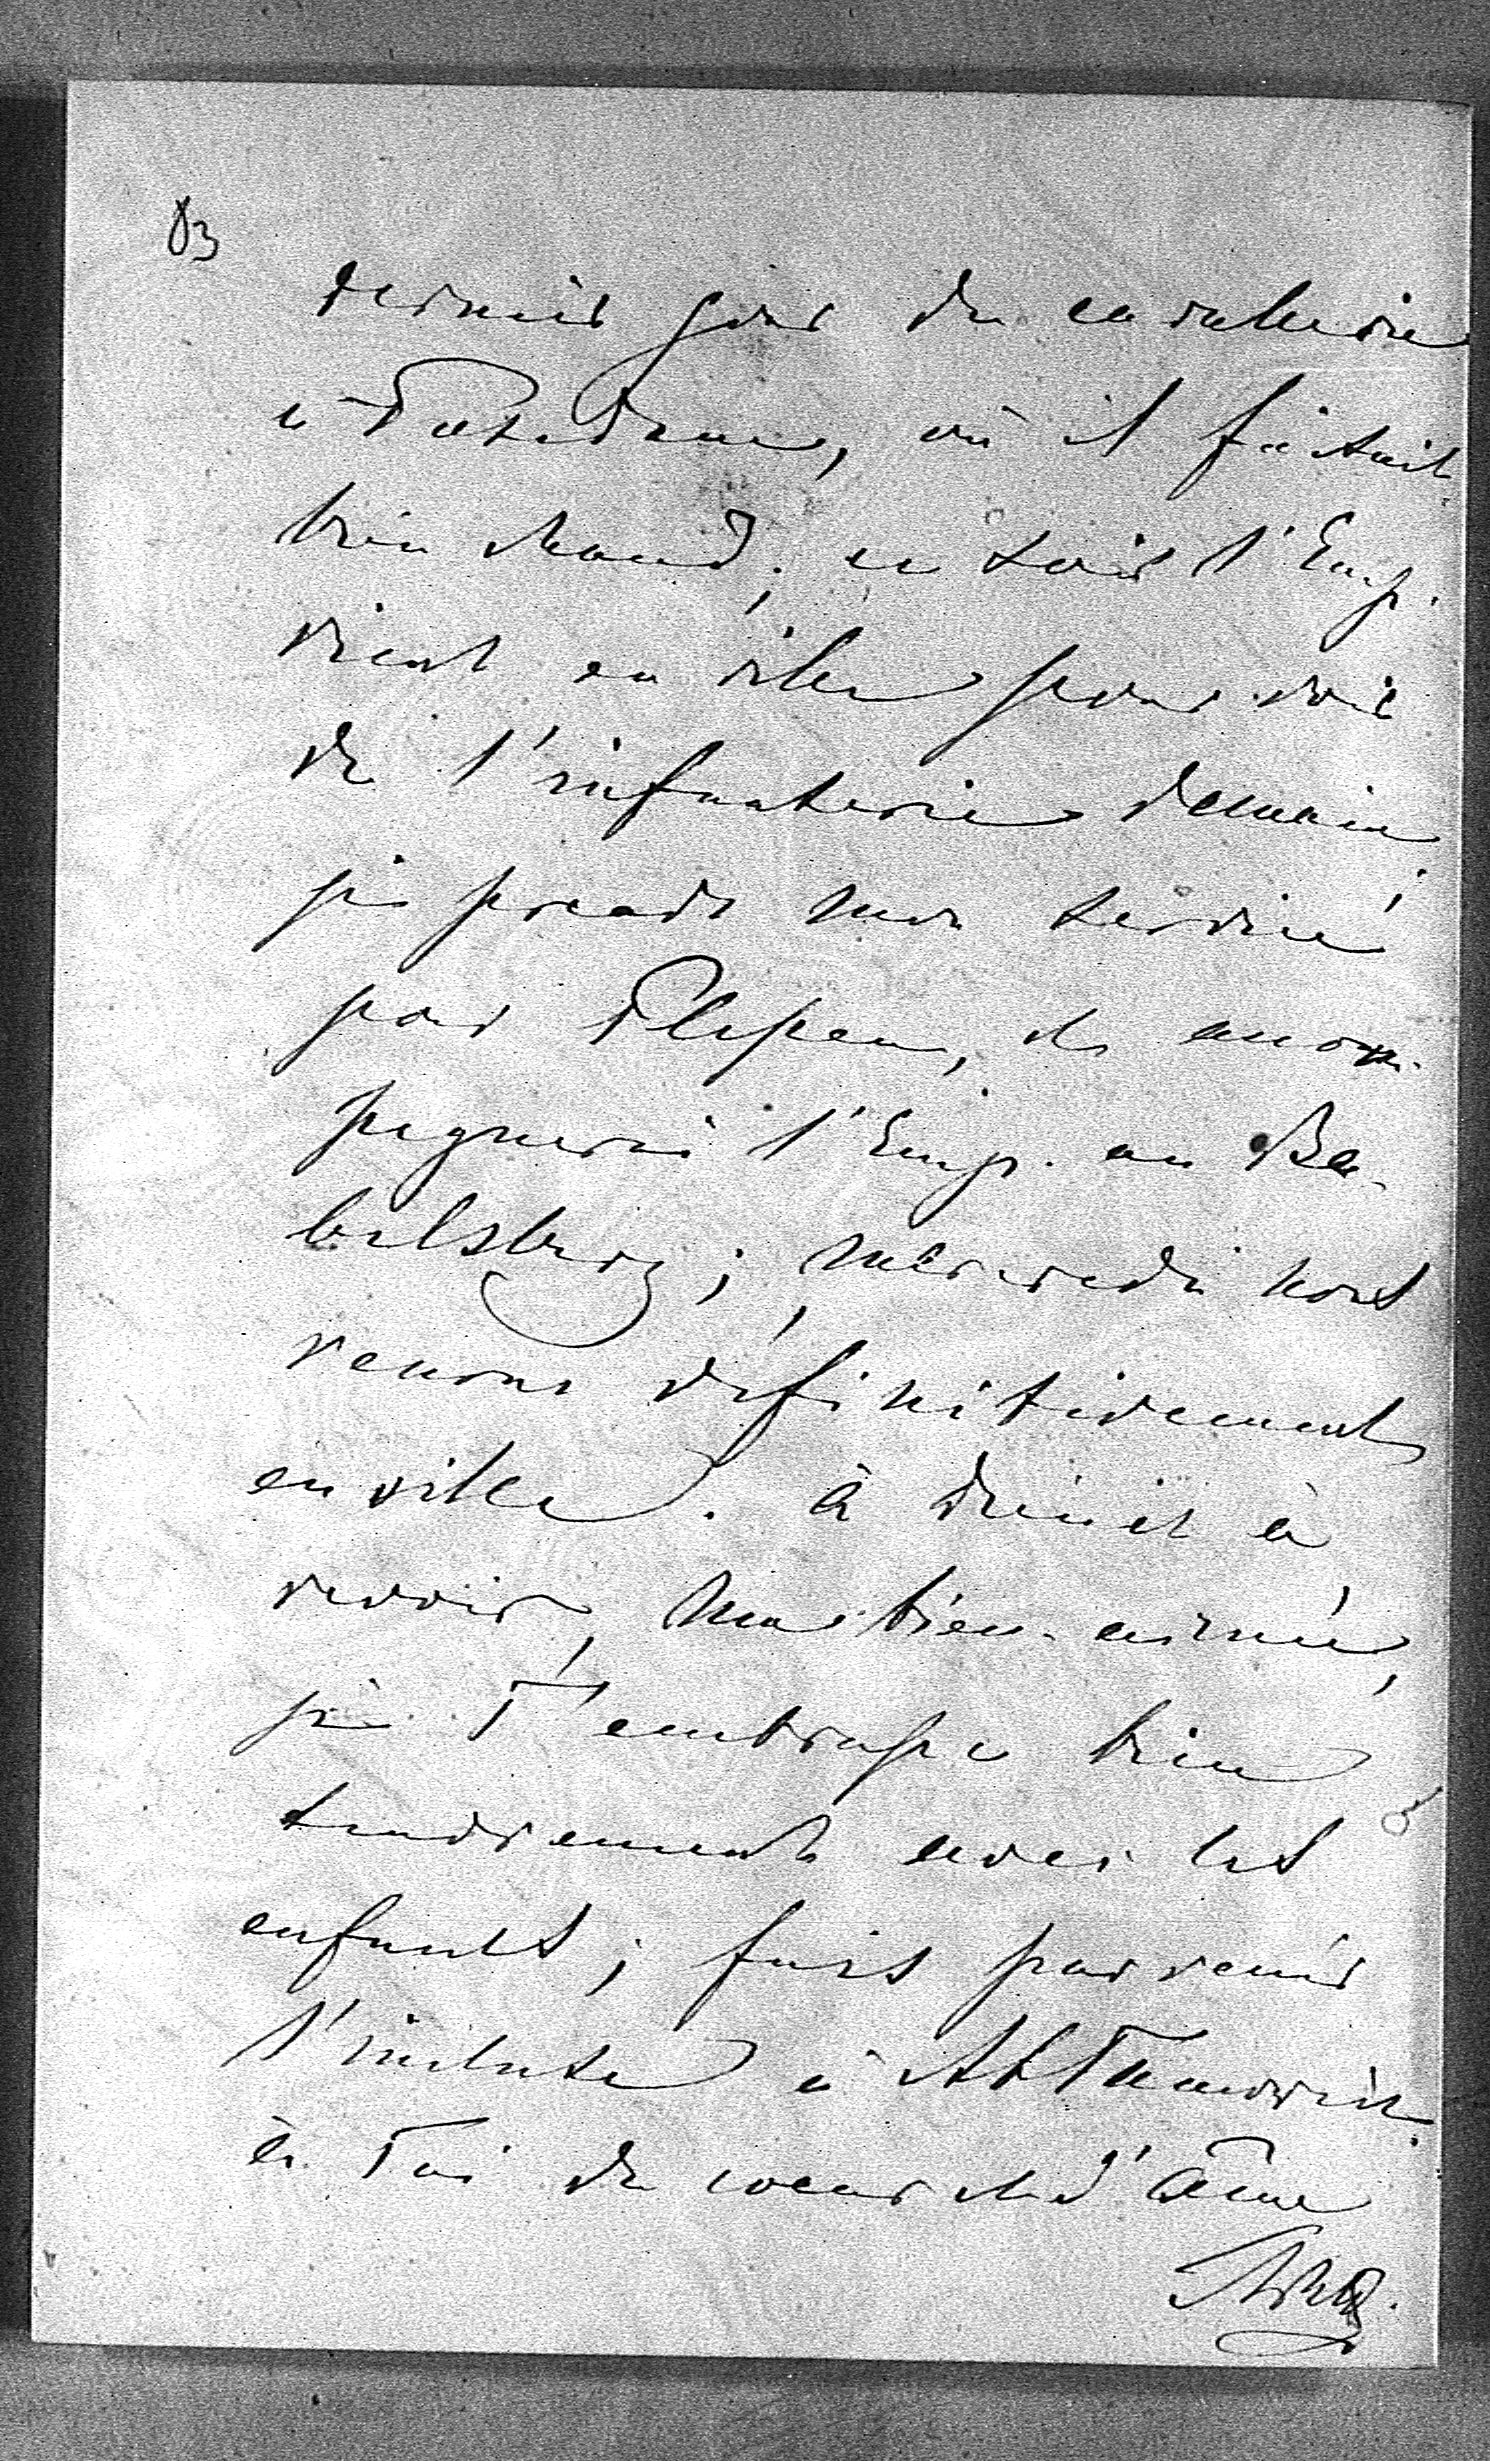 83
dernier jour de cavalerie
à Potsdam, où il faisait
bien chaud; ce soir l'Emp.
vient en ville pour voir
de l'infanterie demain,
je prends mon service
pour Plessen, et accom-
pagnerai l'Emp. au Ba-
belsberg; mercredi nous
venons définitivement
en ville. à bientôt à
revoir, ma bien-aimée,
je T'embrasse bien
tendrement avec les
enfants; fais parvenir
l'incluse à
à Toi de coeur et d'âme